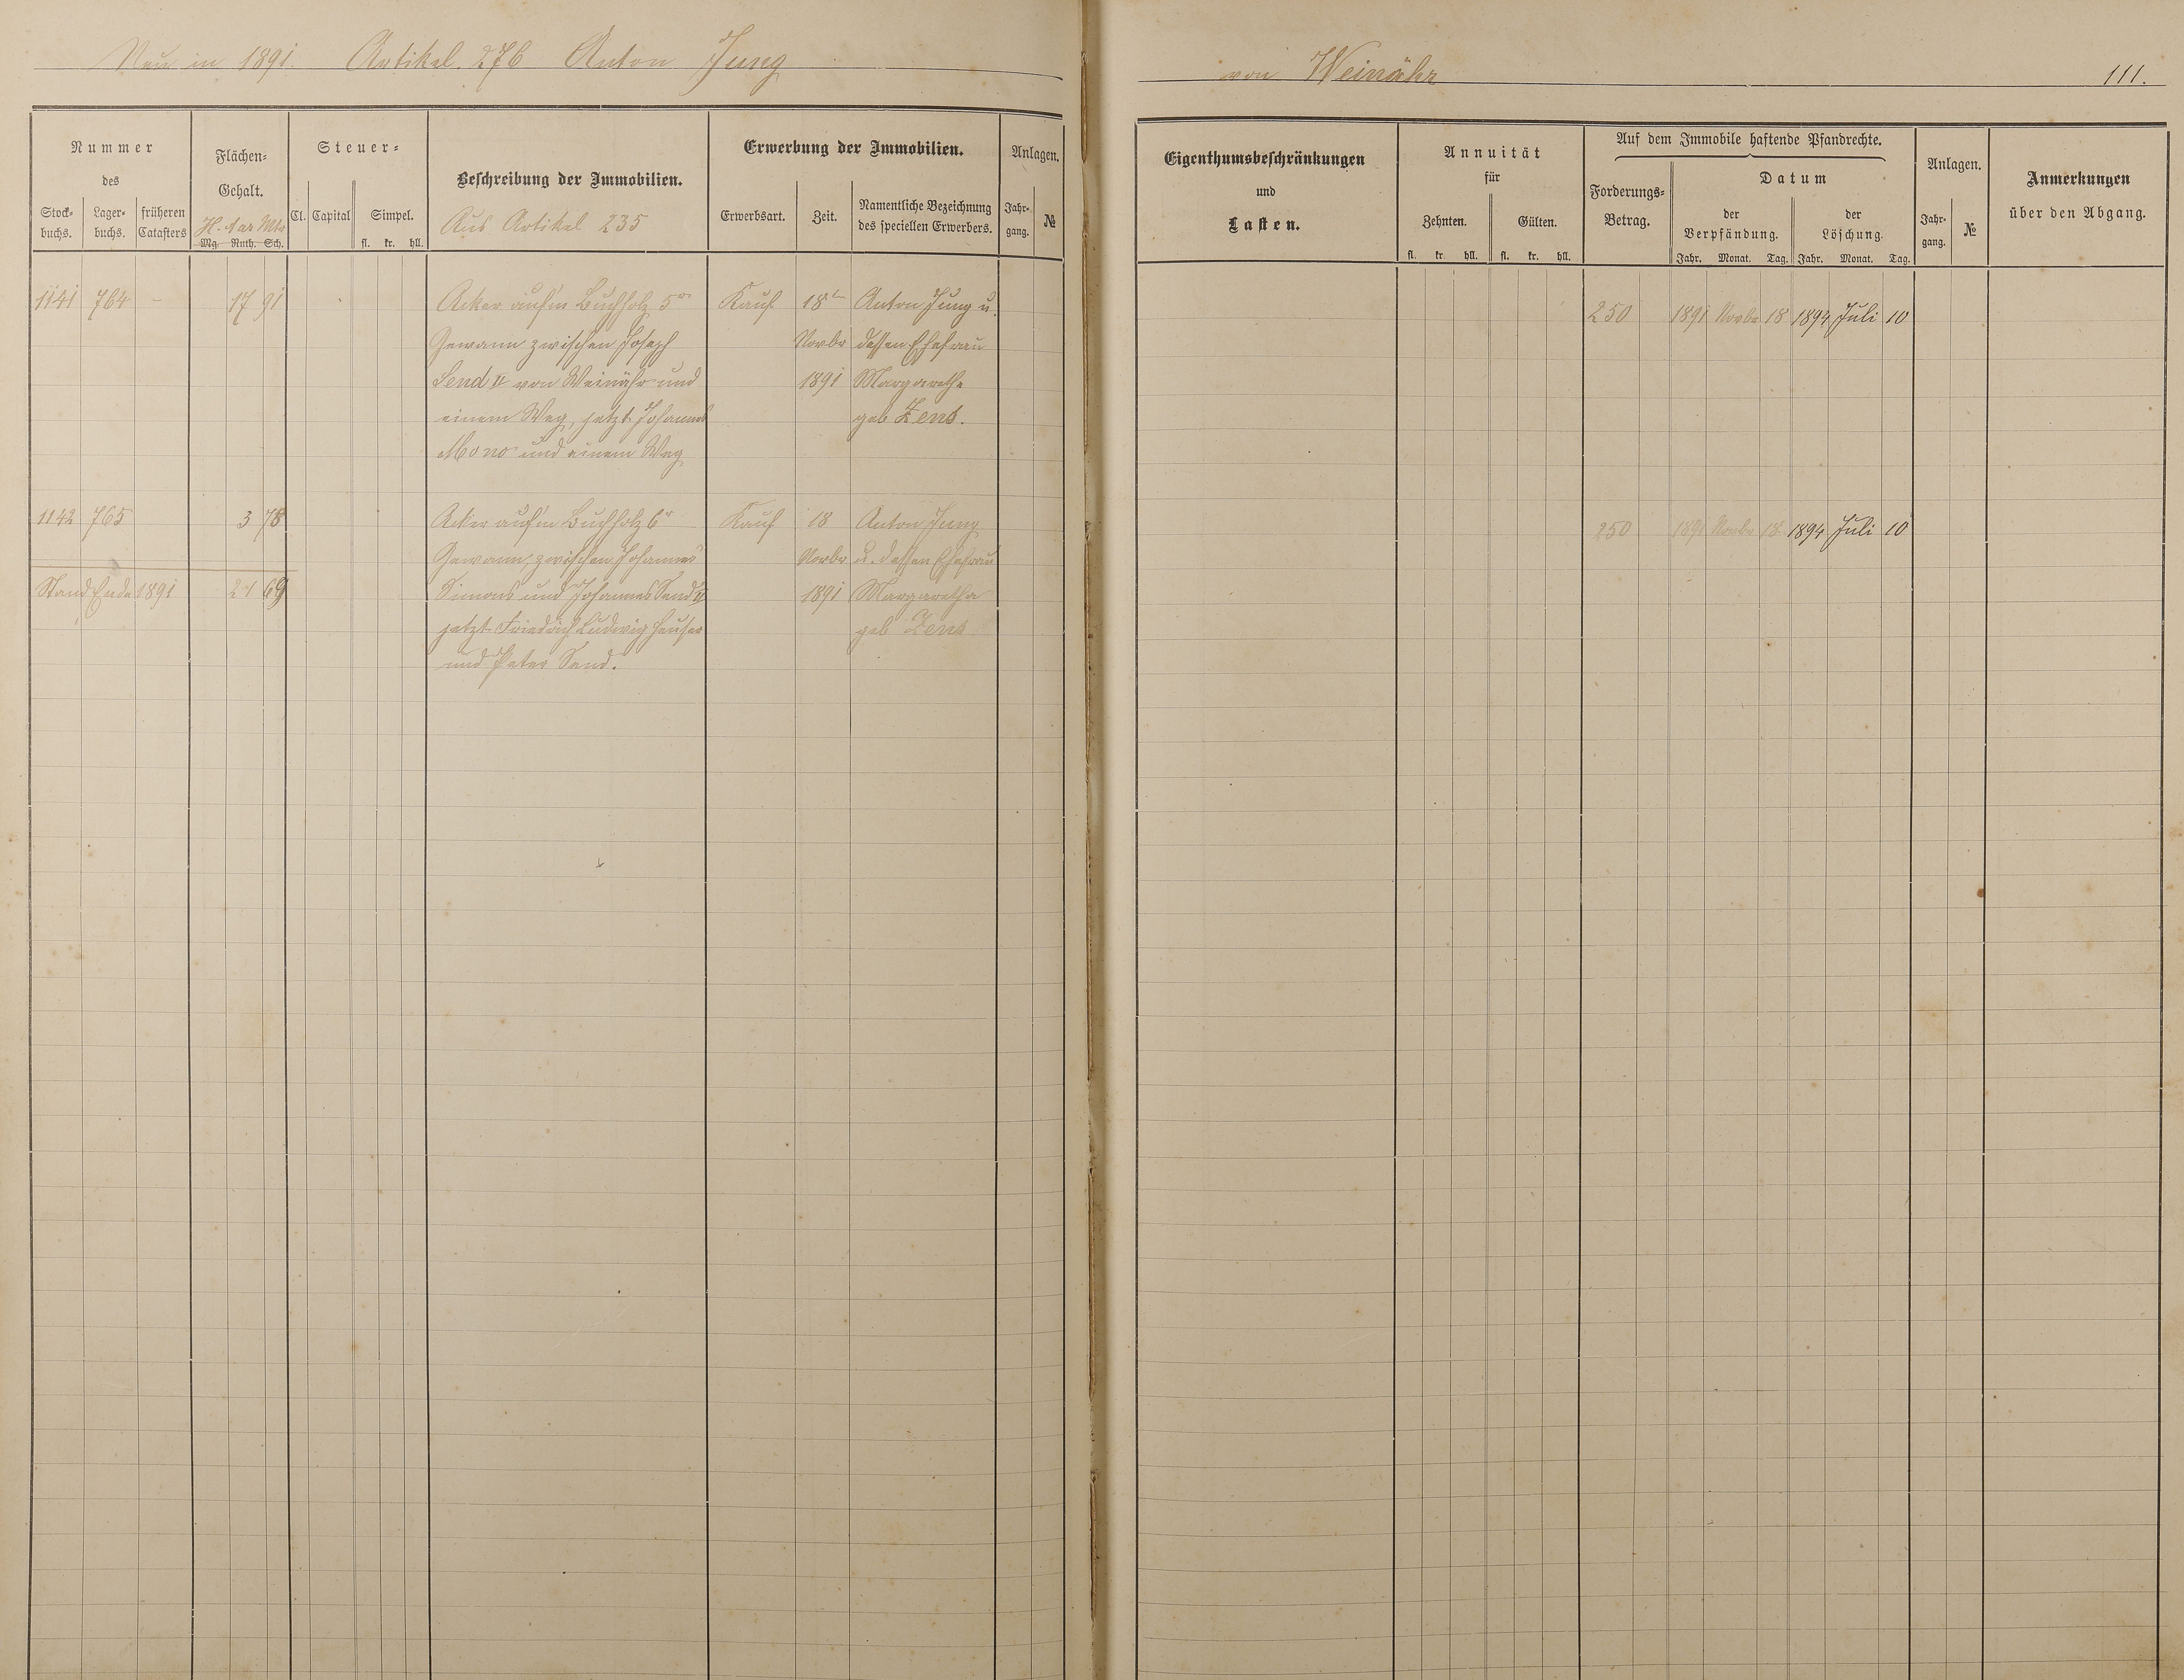 Neu in 1891. Artikel. 276 Anton Jung
von Weinähr 111.
Nummer
des
Stock-
buchs.
Lager-
buchs.
früheren
Catasters
Flächen-
Gehalt.
H. Aar Mtr
Mg. Ruth. Sch.
Steuer-
Cl. Capital Simpel.
fl. kr. hll.
Beschreibung der Immobilien.
Aus Artikel 235
Erwerbung der Immobilien.
Erwerbsart. Zeit.
Namentliche Bezeichnung
des speciellen Erwerbers.
Anlagen.
Jahr-
gang.
№
Eigenthumsbeschränkungen
und
Lasten.
Annuität
für
Zehnten. Gülten.
fl. kr. hll. fl. kr. hll.
Auf dem Immobile haftende Pfandrechte.
Forderungs-
Betrag.
Datum
der
Verpfändung.
der
Löschung.
Jahr. Monat. Tag. Jahr. Monat. Tag.
Anlagen.
Jahr-
gang.
№
Anmerkungen
über den Abgang.
1141 764 - 17 91 Acker auf'm Buchholz 5r Kauf 18ten Anton Jung u. 250 1891 Novbr 18 1894 Juli 10
Gewann zwischen Joseph Novbr dessen Ehefrau
Send II von Weinähr und 1891 Margarethe
einem Weg, jetzt Johannes geb Zens.
Mono und einem Weg
1142 765 3 78 Acker auf'm Buchholz 6r Kauf 18 Anton Jung 250 1891 Novbr 18 1894 Juli 10
Gewann, zwischen Johannes Novbr u. dessen Ehefrau
Stand Ende 1891 21 69 Simons und Johannes Send II 1891 Margaretha
jetzt Friedrich Ludwig Heuser geb Zens
und Peter Send.